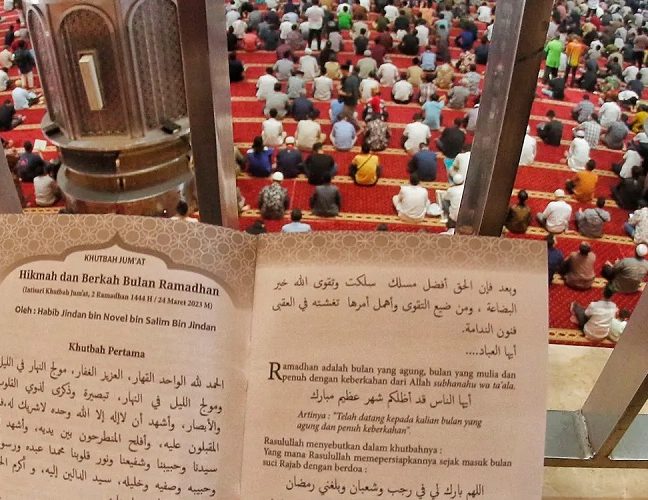 KHUTBAH JUM'AT
Hikmah dan Berkah Bulan Ramadhan
(Intisari Khutbah Jum'at, 2 Ramadhan 1444 H / 24 Maret 2023 M)
Oleh : Habib Jindan bin Novel bin Salim Bin Jindan
Khutbah Pertama
الحمد لله الواحد القهار، العزيز الغفار، مولج النهار في الليل
ومولج الليل في النهار، تبصرة وذكرى لذوي القلوب
والأبصار، وأشهد أن لاإله إلا الله وحده لاشريك له
المقبلون عليه، وأفلح المنطرحون بين يديه، وأشهد أن
سيدنا وحبيبنا وشفيعنا ونور قلوبنا محمدا عبده ورسوله
وحبيبه وصفيه وخليله، سيد الدالين إليه، و أكرم
وبعد فإن الحق أفضل مسلك سلكت وتقوى الله خير
البضاعة ، ومن ضيع التقوى وأهمل أمرها تغشته في العقبى
فنون الندامة.
أيها العباد....
Ramadhan adalah bulan yang agung, bulan yang mulia dan
penuh dengan keberkahan dari Allah subhanahu wa ta'ala.
أيها الناس قد أظلكم شهر عظيم مبارك
Artinya : "Telah datang kepada kalian bulan yang
agung dan penuh keberkahan".
Rasulullah menyebutkan dalam khutbahnya :
Yang mana Rasulullah mempersiapkannya sejak masuk bulan
suci Rajab dengan berdoa :
اللهم بارك لي في رجب وشعبان وبلغني رمضان